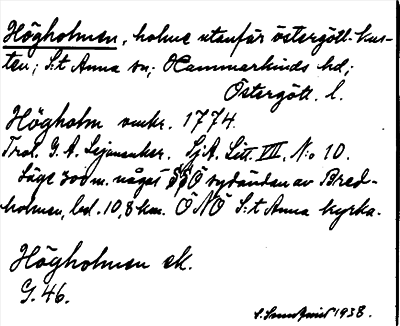 Högholmen, holme utanför östergötl. kus-
ten; S:t Anna sn; Hammarkinds hd;
Östergötl. l.
Högholm omkr. 1774.
Trol. G. A. Lejonanker. SjA. Litt. VII, N:o 10.
Läge 300 m. något SSÖ sydändan av Bred-
holmen, bel. 10,8 km. ÖNÖ S:t Anna kyrka.
Högholmen ek.
G. 46.
1938.